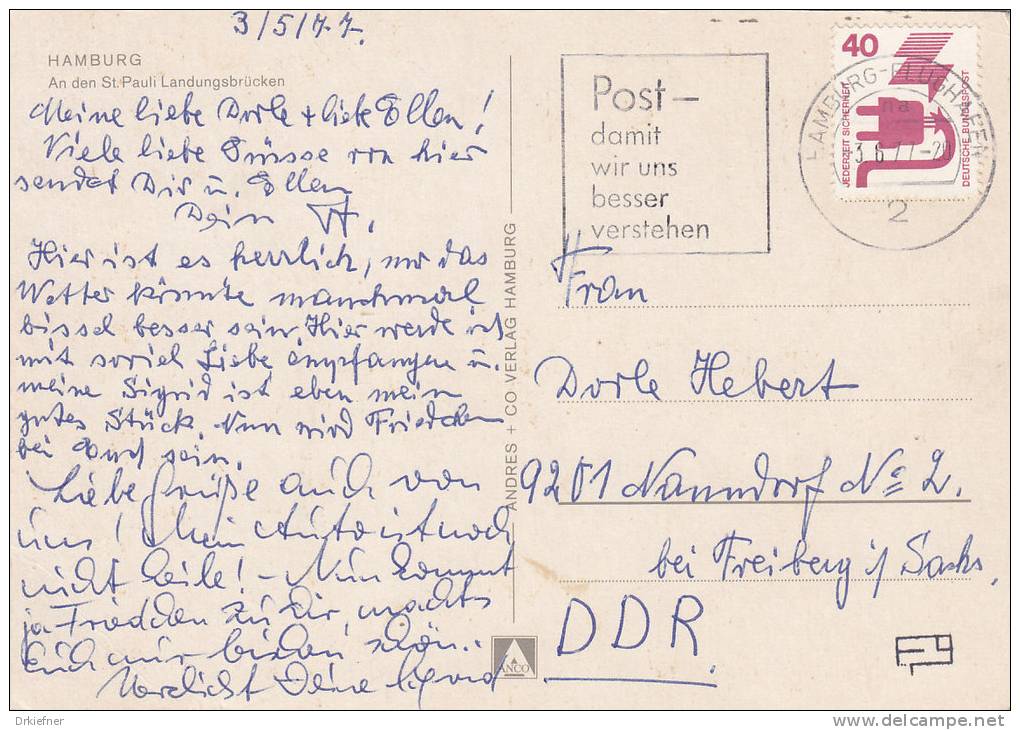 3/5/77.
HAMBURG
An den St. Pauli Landungsbrücken
Meine liebe Dorle + liebe Ellen!
Viele liebe Grüsse von hier
sendet Dir u. Ellen
Dein
Hier ist es herrlich, nur das
Wetter könnte manchmal
bissel besser sein. Hier werde ich
mit soviel Liebe empfangen u.
meine Sigrid ist eben mein
gutes Stück. Nun wird Friedchen
bei Euch sein.
Liebe Grüße auch von
uns! Mein Auto ist noch
nicht heile! – Nun kommt
ja Friedchen zu Dir, macht's
Euch nur bischen schön.
Herzlichst Deine
ANDRES + CO VERLAG HAMBURG
ANCO
Post –
damit
wir uns
besser
verstehen
HAMBURG-FLUGHAFEN
na
-3.6.77-20
2
40
JEDERZEIT SICHERHEIT
DEUTSCHE BUNDESPOST
Frau
Dorle Hebert
9201 Nanndorf No 2.
bei Freiberg i/ Sachs.
DDR.
Drkiefner
www.delcampe.net